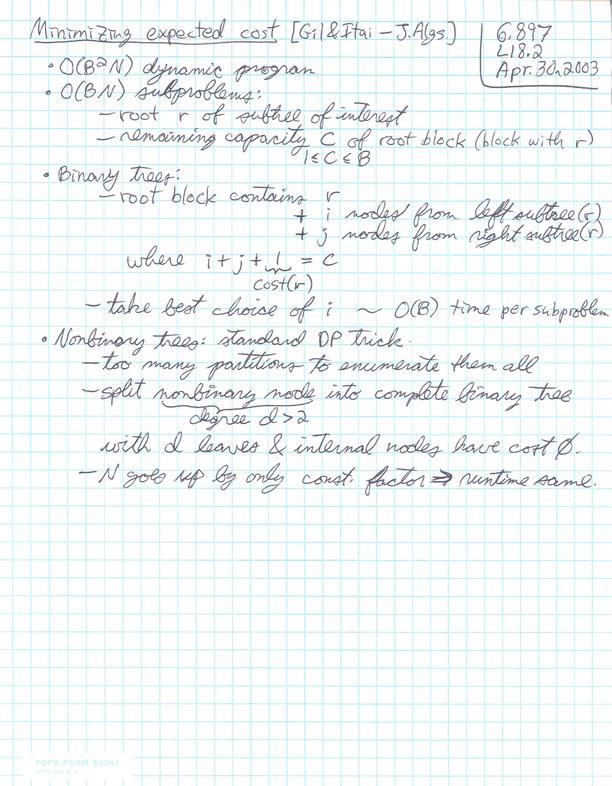 Minimizing expected cost [Gil & Itai - J.Algs.]
6.897
L18.2
Apr. 30, 2003
• O(B²N) dynamic program
• O(BN) subproblems:
– root r of subtree of interest
– remaining capacity C of root block (block with r)
1≤C≤B
• Binary trees:
– root block contains r
+ i nodes from left subtree(r)
+ j nodes from right subtree(r)
where i + j + 1 = C
cost(r)
– take best choice of i ~ O(B) time per subproblem
• Nonbinary trees: standard DP trick.
– too many partitions to enumerate them all
– split nonbinary node into complete binary tree
degree d > 2
with d leaves & internal nodes have cost 0.
– N goes up by only const. factor ⇒ runtime same.
TOPS FORM 33041